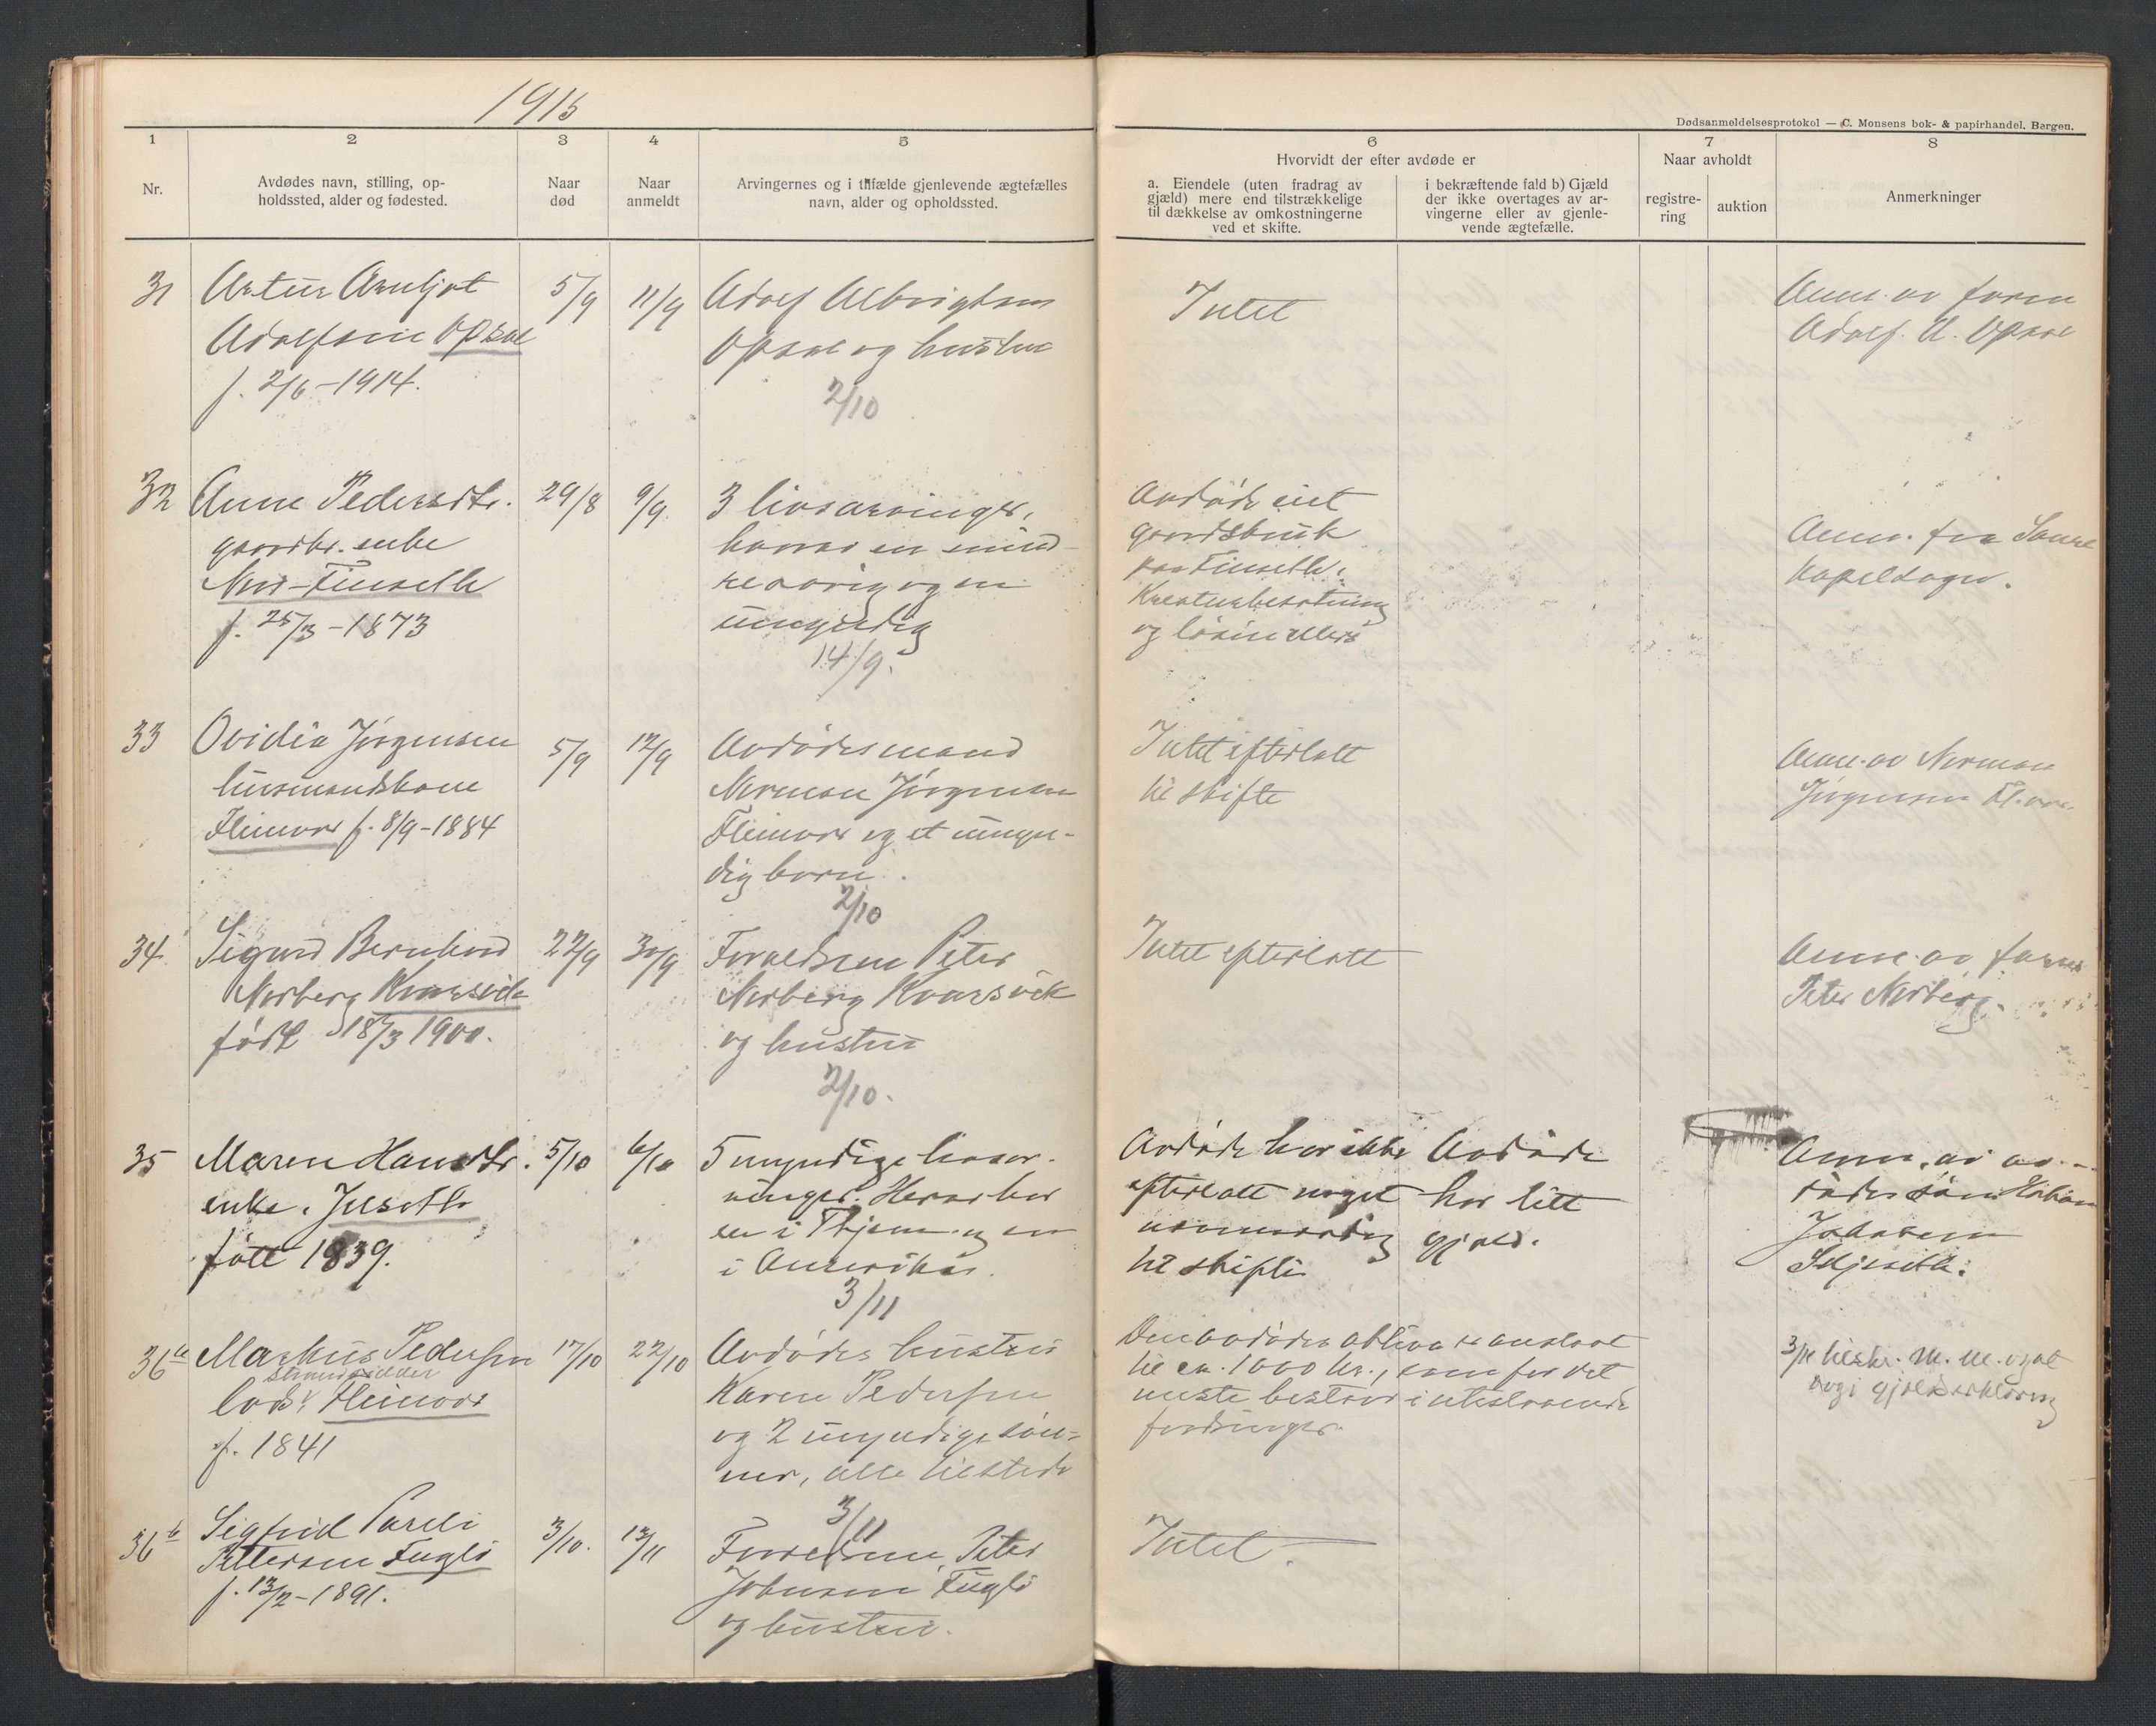 1915
Dødsanmeldelsesprotokol — C. Monsens bok- & papirhandel, Bergen.
1
2
3
4
5
6
7
8
Nr.
Avdødes navn, stilling, op-
holdssted, alder og fødested.
Naar
død
Naar
anmeldt
Arvingernes og i tilfælde gjenlevende ægtefælles
navn, alder og opholdssted.
Hvorvidt der efter avdøde er
a. Eiendele (uten fradrag av
gjæld) mere end tilstrækkelige
til dækkelse av omkostningerne
ved et skifte.
i bekræftende fald b) Gjæld
der ikke overtages av ar-
vingerne eller av gjenle-
vende ægtefælle.
Naar avholdt
registre-
ring
auktion
Anmerkninger
31
Artur Arnljot
Adolfsen Opsal
f. 2/6-1914.
5/9
11/9
Adolf Albrigtsen
Opsal og hustru
2/10
Intet
Anm. av faren
Adolf A. Opsal
32
Anne Pedersdtr.
gaardbr. enke
f. 25/3-1873
29/8
9/9
3 livsarvinger,
hvorav en mind-
reaarig og en
umyndig
14/9.
Avdøde eiet
gaardsbruk
paa Finseth,
Kreaturbesætning
og løsøre ellers
Anm. fra
Kapelsogn.
33
Ovidia Jørgensen
husmandskone
f. 8/9-1884
5/9
12/9
Avdødes mand
Norman Jørgensen
og et umyn-
dig barn.
2/10
Intet efterlatt
til skifte
Anm. av Norman
Jørgensen
34
Sigurd Bernhard
Norberg Kvarsvik
født 18/3 1900.
22/9
30/9
Forældrene Peter
Norberg Kvarsvik
og hustru
2/10.
Intet efterlatt
Anm. av faren
Peter Norberg.
35
Maren Hansdtr.
enke,
født 1839.
5/10
6/10
5 myndige livsar-
vinger. Herav bor
en i Thjem og en
i Amerika.
3/11
Avdøde har ikke
efterlatt noget
nævneværdig
til skifte
Avdøde
har litt
gjæld.
Anm. av av-
dødes søn Håkon
Jakobsen
36a
Markus Pedersen
strandsidder
f. 1841
17/10
22/10
Avdødes hustru
Karen Pedersen
og 2 myndige søn-
ner, alle tilstede
3/11
Den avdødes aktiva er anslaat
til ca. 1000 kr., som for det
meste bestaar i utestaaende
fordringer.
3/11 tilskr.
gjældserklæring
36b
Sigfrid Pareli
Pettersen Fugli
f. 13/2-1891.
3/10.
13/11
Forældrene, Peter
Johnsen Fugli
og hustru.
Intet.